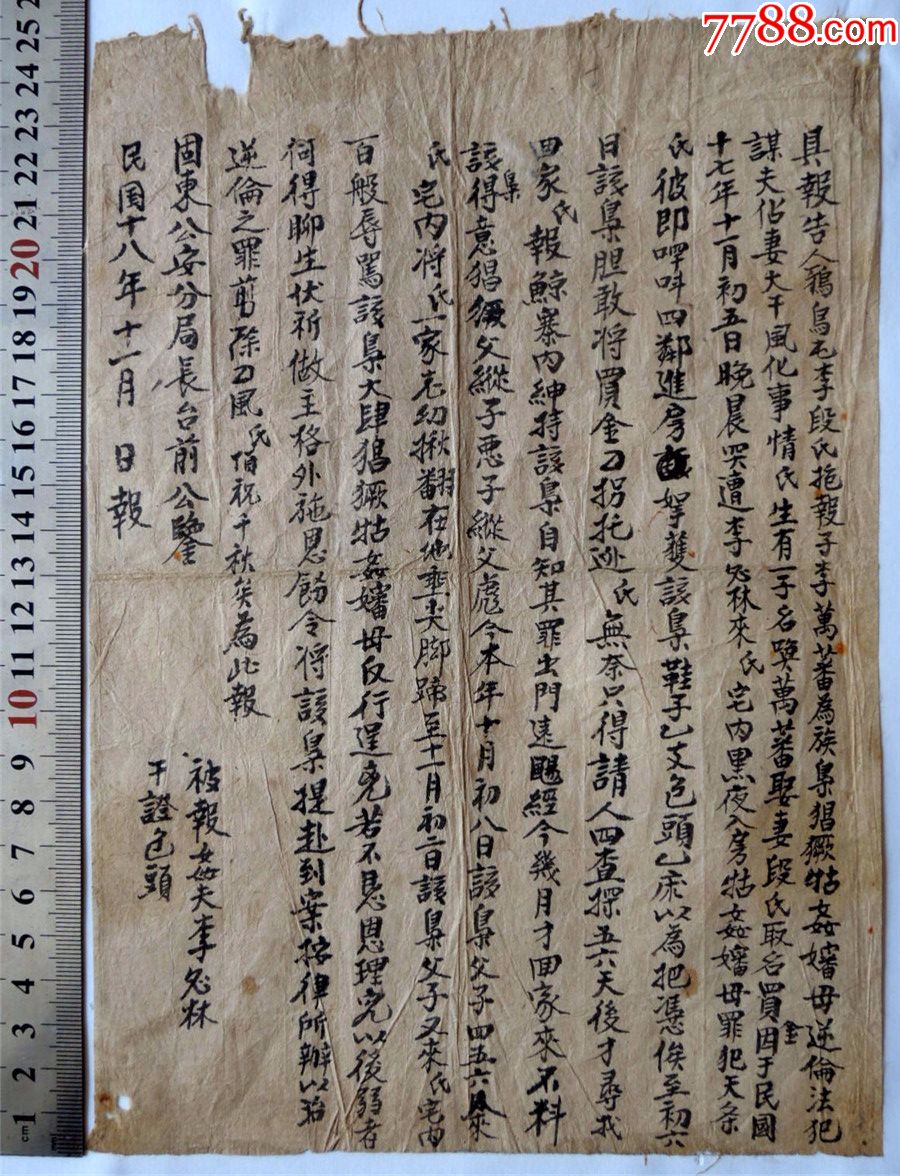 7788.com
具報告人鵝鳥毛李段氏抱報子李萬蕃為族梟猖獗牯姦嬸母逆倫法犯
謀夫佔妻大干風化事情氏生有一子名喚萬蕃娶妻段氏取名買金因于民國
十七年十一月初五日晚晨哭遭李必林來氏宅内黑夜入房牯姦嬸母罪犯天条
氏彼即呼叫四鄰進房拏獲該梟鞋子乙支包頭乙床以為把憑俟至初六
日該梟胆敢将買金刁拐托逊氏無奈只得請人四查探五六天後才尋找
回家氏報鯨寨内紳持該梟自知其罪出門遠颺經今幾月才回家來不料
該梟得意猖獗父縱子惡子縱父彪今本年十月初八日該梟父子四五六人來
氏宅内将氏一家老幼揪翻在地捶尖脚蹄至十一月初二日該梟父子又來氏宅内
百般辱罵該梟大肆猖獗牯姦嬸母反行逞兇若不恳恩理究以後弱者
何得聊生伏祈做主格外施恩飭令将該梟提赴到案按律所辦以治
逆倫之罪剪除刁風氏佰祝千秋矣為此報
被報姦夫李必林
干證包頭
固東公安分局長台前公鑒
民国十八年十一月 日報
cm 1 2 3 4 5 6 7 8 9 10 11 12 13 14 15 16 17 18 19 20 21 22 23 24 25